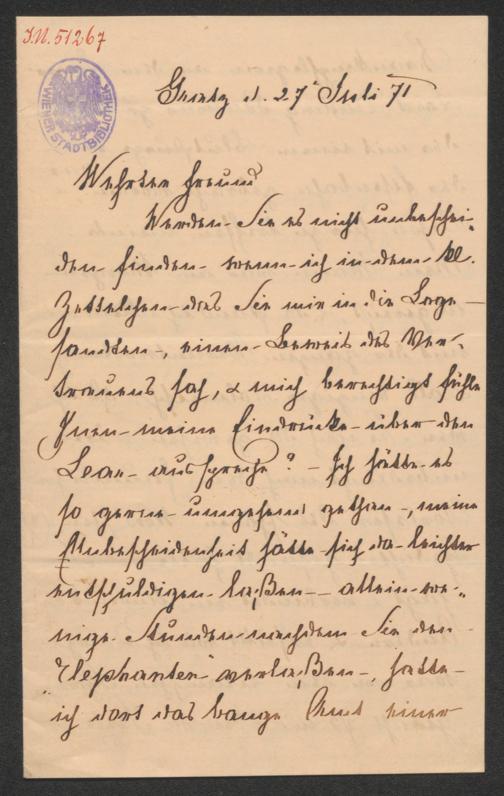 I.N. 51267
WIENER STADTBIBLIOTHEK
Gratz d. 27t Juli 71
Wehrter Freund
Werden Sie es nicht unbeschei-
den finden wenn ich in dem kl.
Zettelchen das Sie mir in die Loge
sandten, einen Beweis des Ver-
trauens sah, & mich berechtigt fühle
Ihnen meine Eindrücke über den
Lear aussprache? – Ich hätte es
so gerne umgehend gethan, meine
Unbescheidenheit hätte sich da leichter
entschuldigen laßen – allein we-
nige Stunden nachdem Sie den
"Elephanten" verlaßen, hatte
ich dort das bange Amt einer